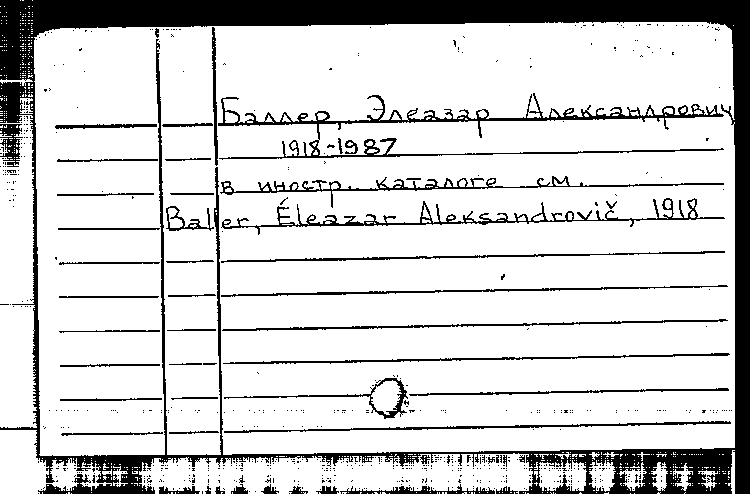 Баллер, Элеазар Александрович
1918-1987
в иностр. каталоге см.
Baller, Éleazar Aleksandrovič, 1918